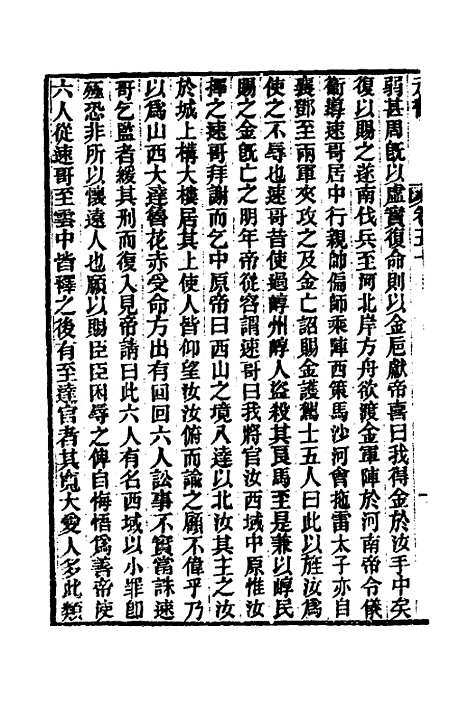 弱甚周旣以虛實復命則以金巵獻帝喜曰我得金於汝手中矣
復以賜之遂南伐兵至河北岸方舟欲渡金軍陣於河南帝令儀
衞導速哥居中行親師偏師乘陣西策馬沙河會拖雷太子亦自
襄鄧至兩軍夾攻之及金亡詔賜金護駕士五人曰此以旌汝爲
使之不辱也速哥昔使過崞州崞人盜殺其良馬至是兼以崞民
賜之金旣亡之明年帝從容謂速哥曰我將官汝西域中原惟汝
擇之速哥拜謝而乞中原帝曰西山之境八達以北汝其主之汝
於城上構大樓居其上使人皆仰望汝汝俯而諭之顧不偉乎乃
以爲山西大達魯花赤受命方出有回回六人訟事不實當誅速
哥乞監者緩其刑而復入見帝請曰此六人有名西域以小罪卽
殛恐非所以懷遠人也願以賜臣臣困辱之俾自悔悟爲善帝從
六人從速哥至雲中皆釋之後有至達官者其寬大愛人多此類